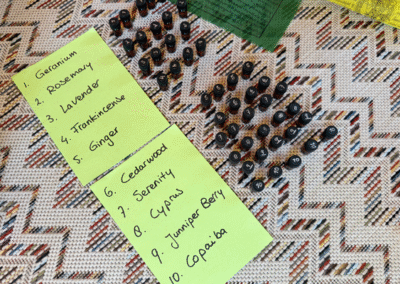 1. Geranium
2. Rosemary
3. Lavender
4. Frankincense
5. Ginger
6. Cedarwood
7. Serenity
8. Cyprus
9. Junniper Bery
10. Copaiba